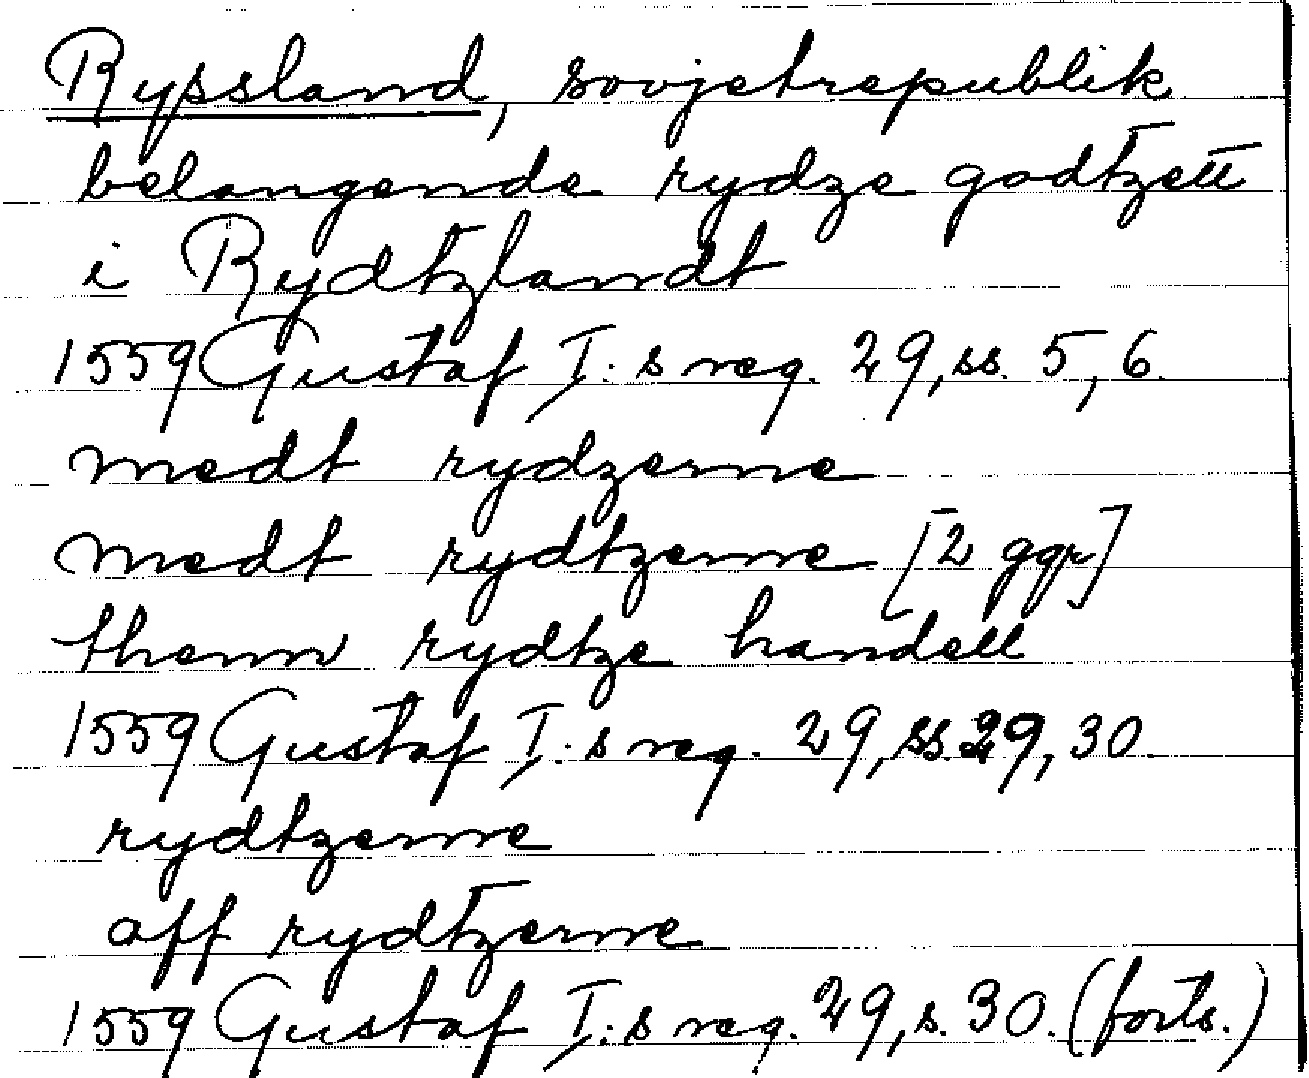 Ryssland, sovjetrepublik
belangende rydze godtzett
i Rydtzlandt
1559 Gustaf I:s reg. 29, ss. 5, 6.
medt rydzerne
medt rydtzerne [2 ggr]
thenn rydtze handell
1559 Gustaf I:s reg. 29, ss. 29, 30.
rydtzerne
aff rydtzerne
1559 Gustaf I:s reg. 29, s. 30. (forts.)